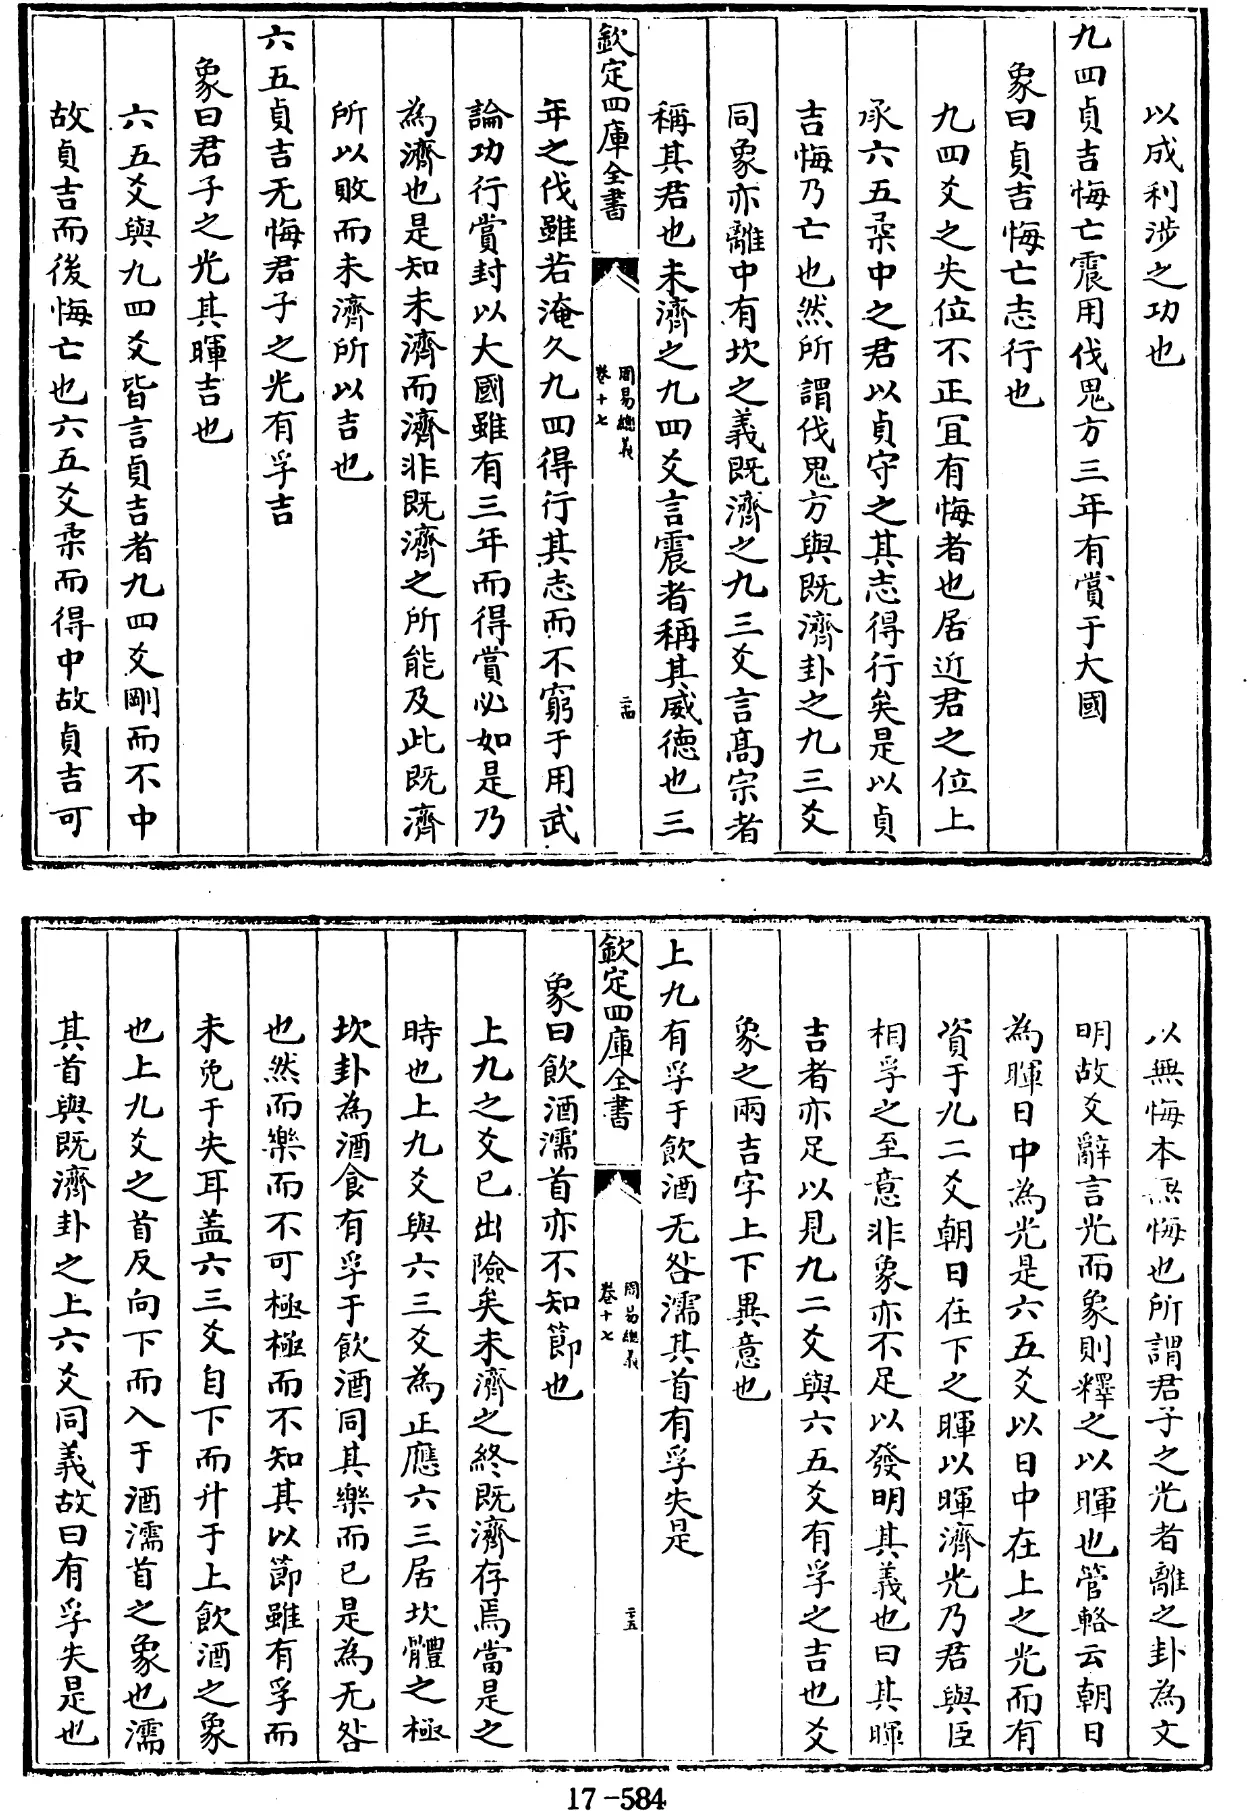 以成利涉之功也
九四貞吉悔亡震用伐鬼方三年有賞于大國
象曰貞吉悔亡志行也
九四爻之失位不正宜有悔者也居近君之位上
承六五柔中之君以貞守之其志得行矣是以貞
吉悔乃亡也然所謂伐鬼方與既濟卦之九三爻
同象亦離中有坎之義既濟之九三爻言髙宗者
稱其君也未濟之九四爻言震者稱其威德也三
欽定四庫全書
周易總義
卷十七
二十四
年之伐雖若淹久九四得行其志而不窮于用武
論功行賞封以大國雖有三年而得賞必如是乃
為濟也是知未濟而濟非既濟之所能及此既濟
所以敗而未濟所以吉也
六五貞吉无悔君子之光有孚吉
象曰君子之光其暉吉也
六五爻與九四爻皆言貞吉者九四爻剛而不中
故貞吉而後悔亡也六五爻柔而得中故貞吉可
以無悔本無悔也所謂君子之光者離之卦為文
明故爻辭言光而象則釋之以暉也管輅云朝日
為暉日中為光是六五爻以日中在上之光而有
資于九二爻朝日在下之暉以暉濟光乃君與臣
相孚之至意非象亦不足以發明其義也曰其暉
吉者亦足以見九二爻與六五爻有孚之吉也爻
象之兩吉字上下異意也
上九有孚于飲酒无咎濡其首有孚失是
欽定四庫全書
周易總義
卷十七
二十五
象曰飲酒濡首亦不知節也
上九之爻已出險矣未濟之終既濟存焉當是之
時也上九爻與六三爻為正應六三居坎體之極
坎卦為酒食有孚于飲酒同其樂而已是為无咎
也然而樂而不可極極而不知其以節雖有孚而
未免于失耳盖六三爻自下而升于上飲酒之象
也上九爻之首反向下而入于酒濡首之象也濡
其首與既濟卦之上六爻同義故曰有孚失是也
17-584